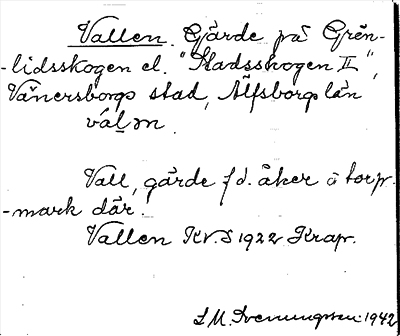 Vallen. Gärde på Grên-
-lidsskogen el. "Stadsskogen II",
Vänersborgs stad, Älfsborgs län
Vall, gärde f d. åker å torp-
-mark där.
Vallen Kv. S 1922 Krap.
S M. Svenungsson 1942